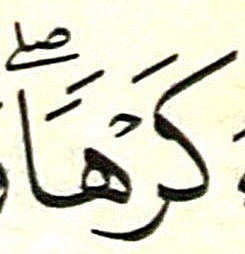 كَرْهًاۖ